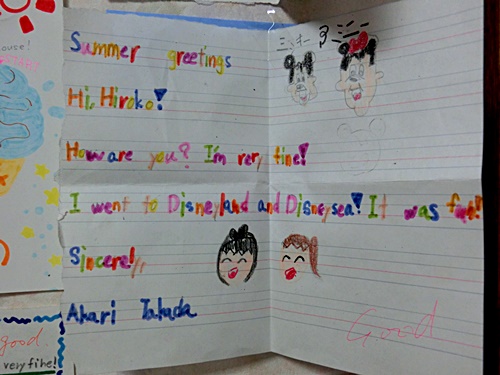 ouse!
Summer greetings
Hi, Hiroko!
How are you? I'm very fine!
I went to Disneyland and Disneysea! It was fun!
Sincerely,
Akari Takada
Good
good
very fine!